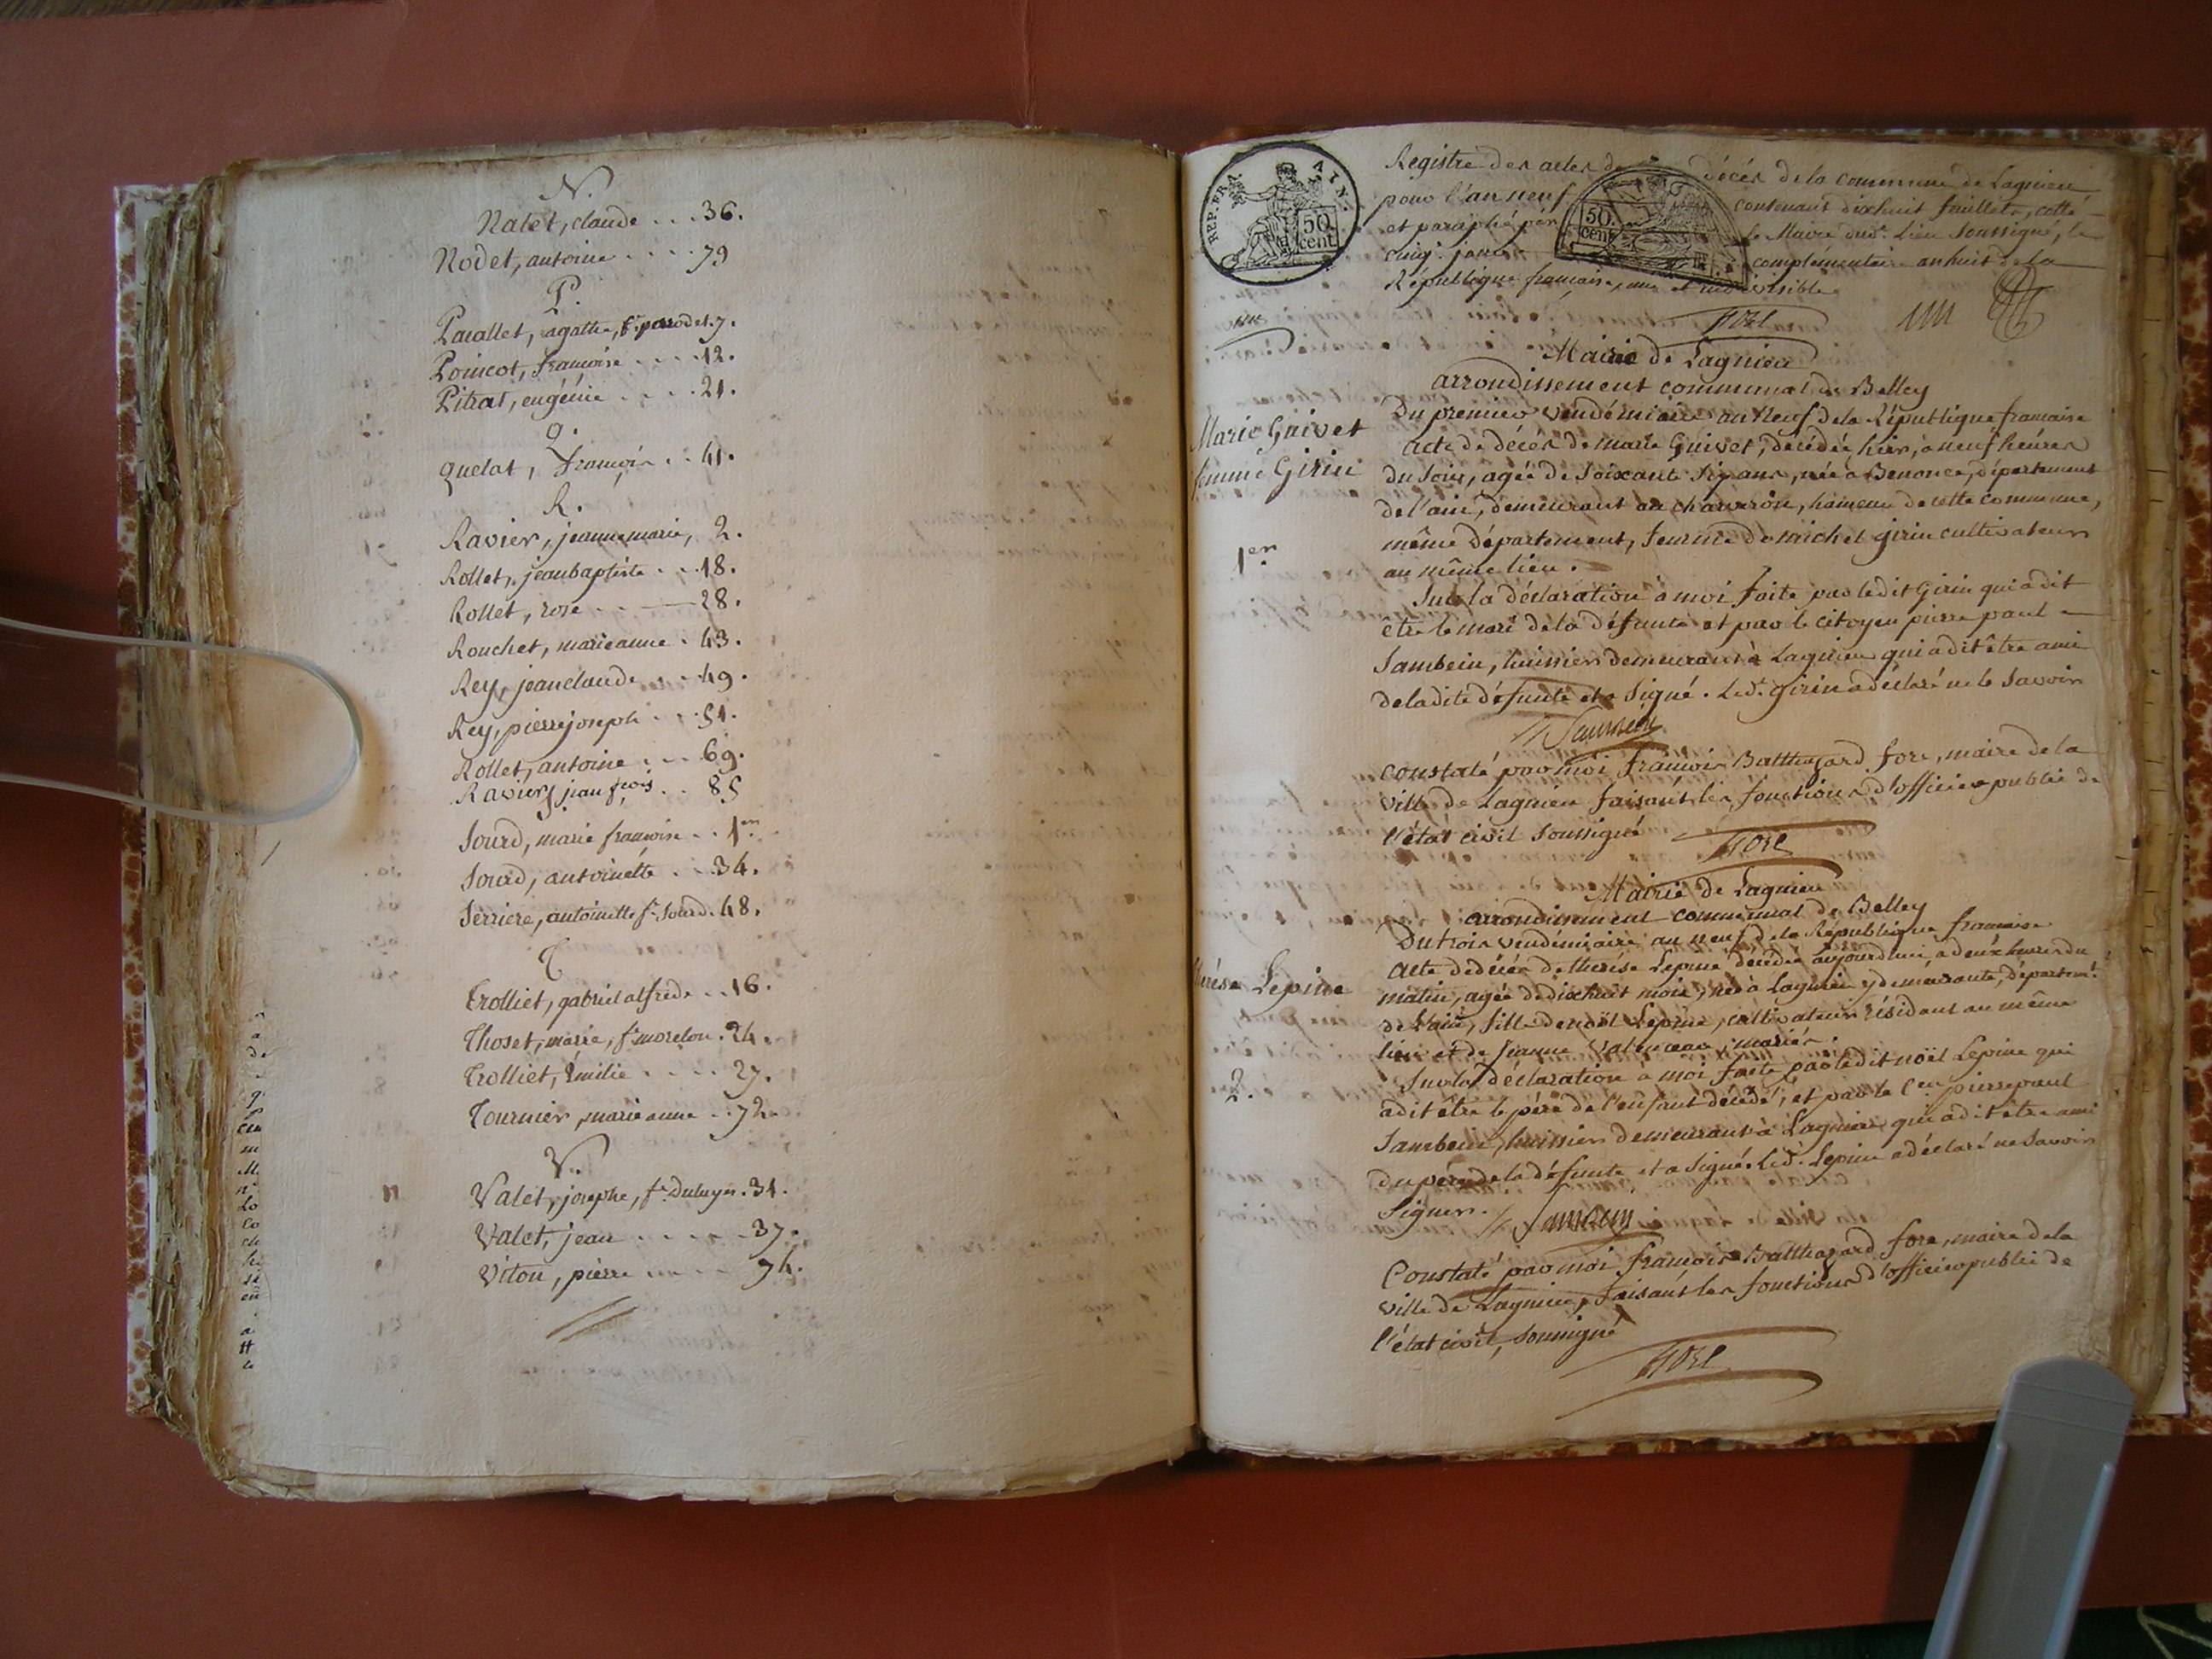 N.
Nalet, claude . . . 36.
Nodet, antoine . . . . 79
P.
Parallet, agathe, fe. parrodet. 7.
Poincot, francoise . . . . 12.
Pitrat, eugénie . . . . 21.
Q.
Quelat, françois . . 41.
R.
Ravier, jeannemarie, 2.
Rollet, jeanbaptiste . . . 18.
Rollet, rose . . — 28.
Rouchet, marieanne . 43.
Rey, jeanclaude . . . 49.
Rey, pierrejoseph . . . 51.
Rollet, antoine . . . 69.
Ravier, jean fçois . . 85
Sourd, marie françoise . . 1er
Sourd, antoinette . . . 34.
Serriere, antoinette fe. Sourd. 48.
T
Trolliet, gabriel alfrede . . 16.
Thoset, marie, fe. morelon . 24.
Trolliet, Émilie . . . . 27.
Tournier, marieanne . . 72.
V.
Valet, josephe, fe. Duluyer . 31.
Valet, jean . . . . . 37.
Viton, pierre . . . . 74.
REP. FRA. AIN. 50 cent.
50 cent.
Registre des actes de décès de la commune de Lagnieu
pour l'an neuf contenant dixhuit feuillets, cotté
et paraphé par le Maire dud. lieu soussigné, le
cinq. jour complémentaire an huit de la
République française, une et indivisible
fore
Mairie de Lagnieu
arrondissement communal de Belley
Du premier vendémiaire an Neuf de la République francaise
Marie Guivet
femme Girin
1er
acte de décès de marie Guivet, décédée hier, a neuf heures
du soir, agée de soixante six ans, née à Benonce, département
de l'ain, demeurant au charveron, hameau de cette commune,
même département, femme de michel girin cultivateur
au même lieu.
Sur la déclaration à moi faite par ledit Girin qui a dit
être le mari de la défunte et par le citoyen pierre paul
Jambein, huissier demeurant à Lagnieu qui a dit être ami
de ladite défunte et a signé. led. girin a déclaré ne le savoir
Jambein
Constaté par moi françois Balthazard fore, maire de la
ville de Lagnieu faisant les fonctions d'officier public de
l'état civil soussigné
fore
Mairie de Lagnieu
arrondissement communal de Belley
Du trois vendémiaire an neuf de la République francaise
Therese Lepine
2.
Acte de décès de therése Lepine décédée aujourd'hui, a deux heures du
matin, agée de dixhuit mois, née à Lagnieu y demeurante, départemt.
de l'ain, fille de noël Lepine, cultivateur résidant au même
lieu et de jeanne Valenceau, mariés.
Sur la déclaration à moi faite par ledit noël Lepine qui
a dit être le père de l'enfant décédé, et par le Cen. pierre paul
Jambein, huissier demeurant à Lagnieu qui a dit être ami
du père de la défunte et a signé. led. Lepine a déclaré ne savoir
signer. Jambein
Constaté par moi françois Balthazard fore, maire de la
ville de Lagnieu, faisant les fonctions d'officier public de
l'état civil, soussigné
fore